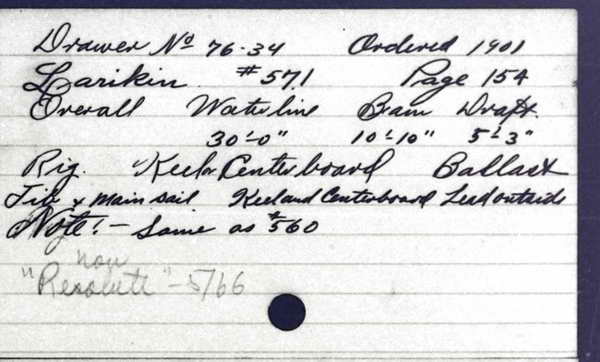 Drawer Nº 76-34 Ordered 1901
Larikin #571 Page 154
Overall Waterline Beam Draft
30'-0" 10'-10" 5'-3"
Rig. Keel or Centerboard Ballast
Jib & Main sail Keel and Centerboard Lead outside
Note! - Same as #560
now
"Resolute" - 5/66